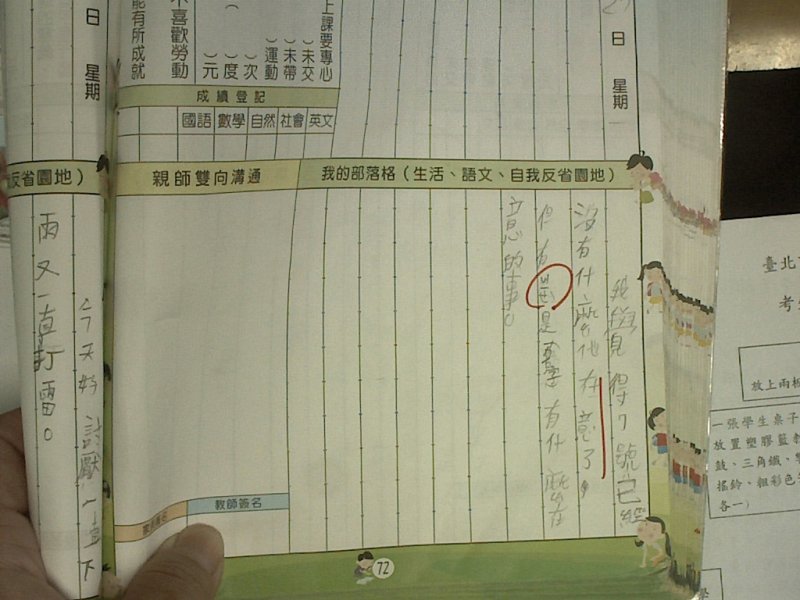 日 星期
上課要專心
）未交
）未帶
）運動
）次
）度
）元
不喜歡勞動
能有所成就
成績登記
國語 數學 自然 社會 英文
我的部落格（生活、語文、自我反省園地）
我覺得7號已經
沒有什麼他在意了，
但有是要有什麼在
意的事。
親師雙向溝通
教師簽名
72
日 星期
反省園地）
今天好討厭一直下
雨又一直打雷。
臺北
考
放上兩板
一張學生桌子
放置塑膠籃
鼓、三角鐵、
搖鈴、粗彩色
各一）
學